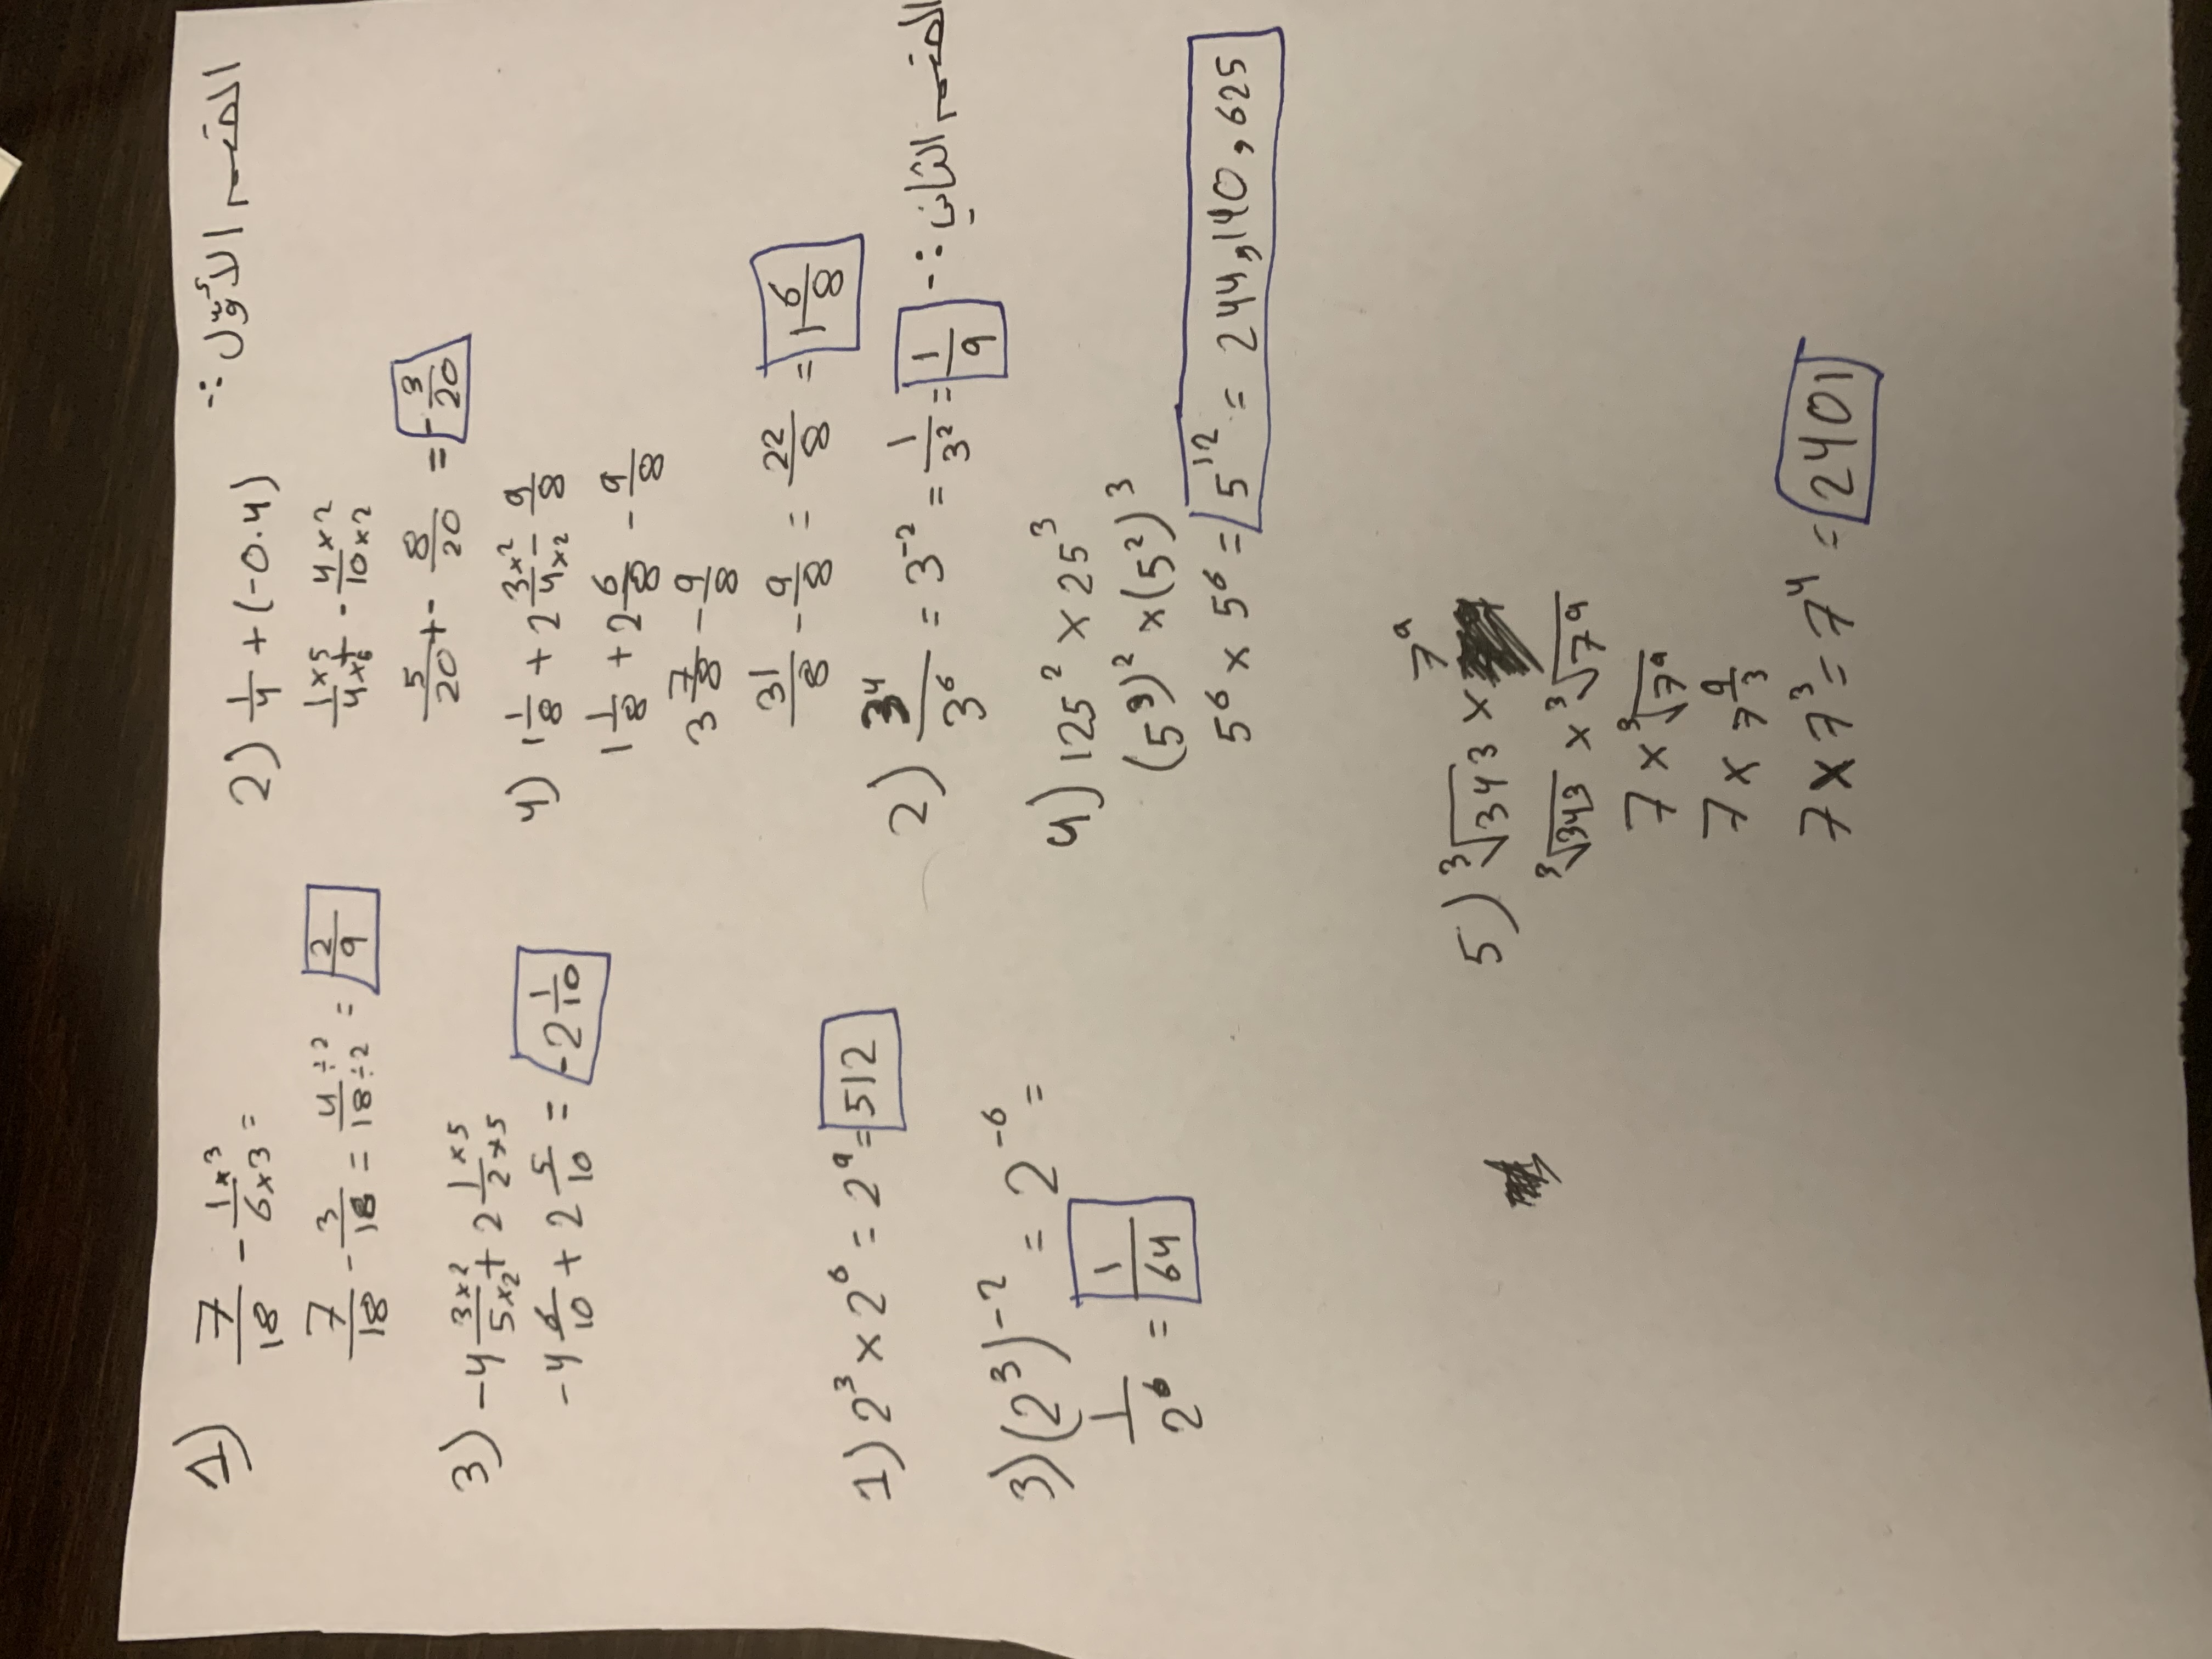 القسم الأول :-
1) 7/18 - 1×3/6×3 =
7/18 - 3/18 = 4÷2/18÷2 = 2/9
2) 1/4 + (-0.4)
1×5/4×5 + - 4×2/10×2
5/20 + - 8/20 = -3/20
3) -4 3×2/5×2 + 2 1×5/2×5
-4 6/10 + 2 5/10 = -2 1/10
4) 1 1/8 + 2 3×2/4×2 - 9/8
1 1/8 + 2 6/8 - 9/8
3 7/8 - 9/8
31/8 - 9/8 = 22/8 = 1 6/8
القسم الثاني :-
1) 2³ × 2⁶ = 2⁹ = 512
2) 3⁴/3⁶ = 3⁻² = 1/3² = 1/9
3) (2³)⁻² = 2⁻⁶ =
1/2⁶ = 1/64
4) 125² × 25³
(5³)² × (5²)³
5⁶ × 5⁶ = 5¹² = 244,140,625
5) ³√343 × 7⁹
³√343 × ³√7⁹
7 × ³√7⁹
7 × 7^9/3
7 × 7³ = 7⁴ = 2401